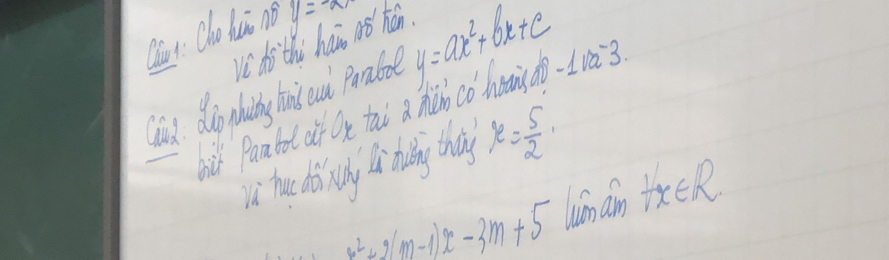 Câu 1: Cho hàm số y = -2
Vẽ đồ thị hàm số trên.
Câu 2: Lập phương trình của Parabol y = ax² + bx + c
biết Parabol cắt Ox tại 2 điểm có hoành độ -1 và -3.
và trục đối xứng là đường thẳng x = 5/2.
x² + 2(m-1)x - 3m + 5 luôn âm ∀x ∈ R.